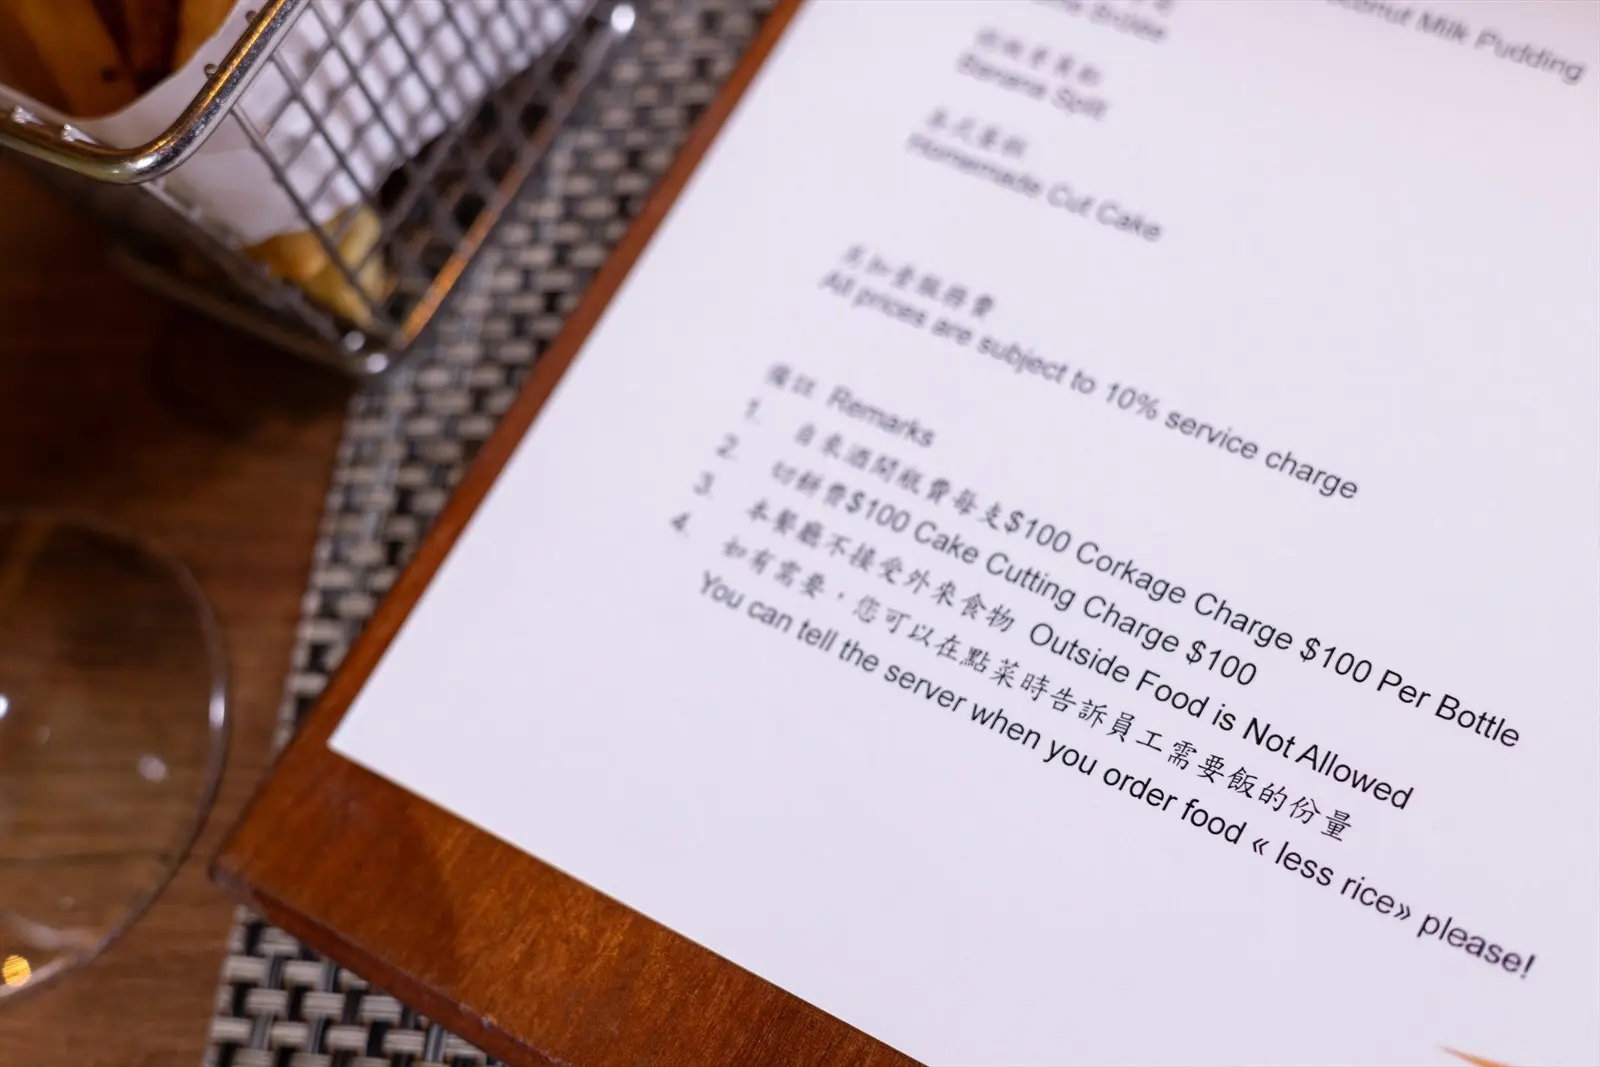 Coconut Milk Pudding
Banana Split
Homemade Cut Cake
另加壹服務費
All prices are subject to 10% service charge
備註 Remarks
1. 自來酒開瓶費每支$100 Corkage Charge $100 Per Bottle
2. 切餅費$100 Cake Cutting Charge $100
3. 本餐廳不接受外來食物 Outside Food is Not Allowed
4. 如有需要，您可以在點菜時告訴員工需要飯的份量
You can tell the server when you order food « less rice» please!